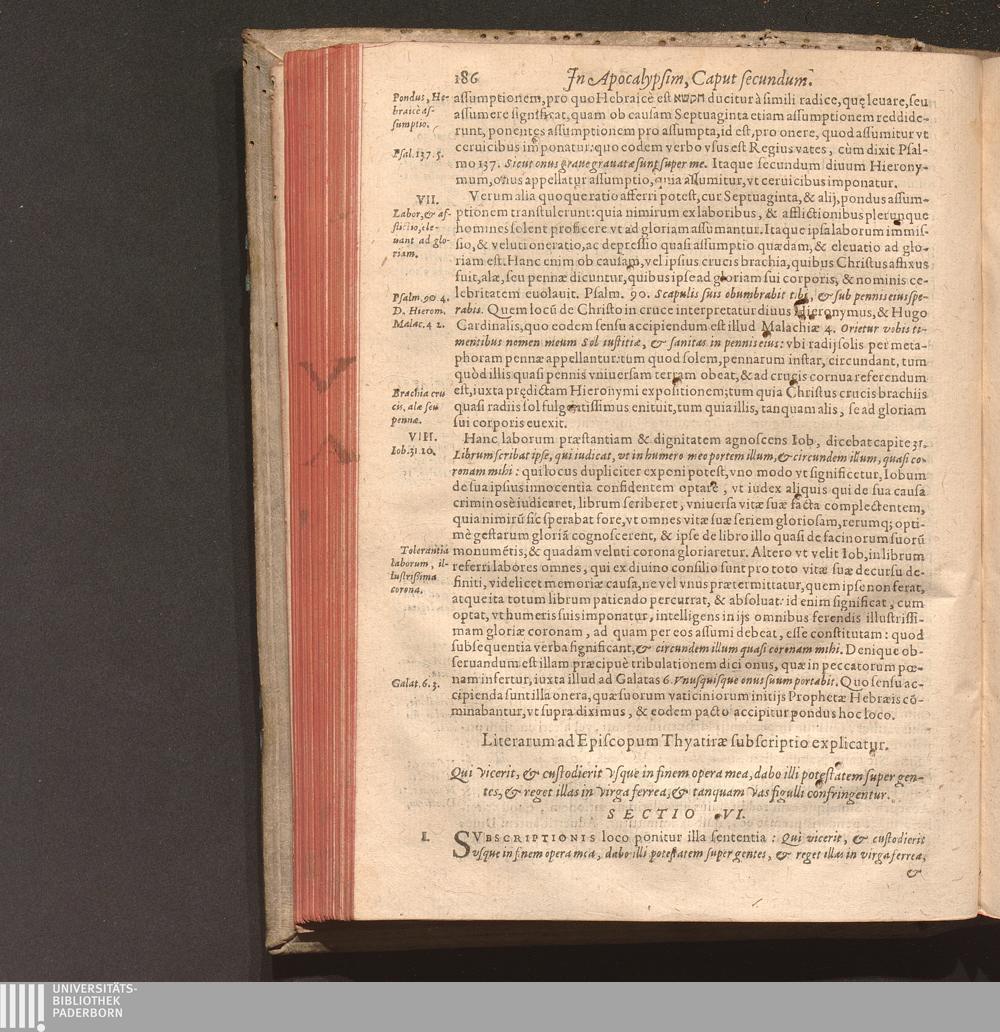 186 In Apocalypsim, Caput secundum.
Pondus, He-
braicè as-
sumptio.
assumptionem, pro quo Hebraicè est ducitur à simili radice, quę leuare, seu
assumere significat, quam ob causam Septuaginta etiam assumptionem reddide-
runt, ponentes assumptionem pro assumpta, id est, pro onere, quod assumitur vt
ceruicibus imponatur: quo eodem verbo vsus est Regius vates, cùm dixit Psal-
Psal. 137. 5.
mo 137. Sicut onus graue grauatæ sunt super me. Itaque secundum diuum Hierony-
mum, onus appellatur assumptio, quia assumitur, vt ceruicibus imponatur.
VII.
Labor, & af-
flictio, ele-
uant ad glo-
riam.
Verum alia quoque ratio afferri potest, cur Septuaginta, & alij, pondus assum-
ptionem transtulerunt: quia nimirum ex laboribus, & afflictionibus plerunque
homines solent proficere vt ad gloriam assumantur. Itaque ipsa laborum immis-
sio, & veluti oneratio, ac depressio quasi assumptio quædam, & eleuatio ad glo-
riam est. Hanc enim ob causam, vel ipsius crucis brachia, quibus Christus affixus
fuit, alæ, seu pennæ dicuntur, quibus ipse ad gloriam sui corporis, & nominis ce-
Psalm. 90. 4.
D. Hieron.
Malac. 4 2.
lebritatem euolauit. Psalm. 90. Scapulis suis obumbrabit tibi, & sub pennis eius spe-
rabis. Quem locũ de Christo in cruce interpretatur diuus Hieronymus, & Hugo
Cardinalis, quo eodem sensu accipiendum est illud Malachiæ 4. Orietur vobis ti-
mentibus nomen meum Sol iustitiæ, & sanitas in pennis eius: vbi radij solis per meta-
phoram pennæ appellantur: tum quod solem, pennarum instar, circundant, tum
quòd illis quasi pennis vniuersam terram obeat, & ad crucis cornua referendum
Brachia cru
cis, alæ seu
pennæ.
est, iuxta prędictam Hieronymi expositionem; tum quia Christus crucis brachiis
quasi radiis sol fulgentissimus enituit, tum quia illis, tanquam alis, se ad gloriam
sui corporis euexit.
VIII.
Iob. 31. 10.
Hanc laborum præstantiam & dignitatem agnoscens Iob, dicebat capite 31.
Librum scribat ipse, qui iudicat, vt in humero meo portem illum, & circundem illum, quasi co-
ronam mihi: qui locus dupliciter exponi potest, vno modo vt significetur, Iobum
de sua ipsius innocentia confidentem optare, vt iudex aliquis qui de sua causa
criminosè iudicaret, librum scriberet, vniuersa vitæ suæ facta complectentem,
quia nimirũ sic sperabat fore, vt omnes vitæ suæ seriem gloriosam, rerumq; opti-
mè gestarum gloriã cognoscerent, & ipse de libro illo quasi de facinorum suorũ
Tolerantia
laborum, il-
lustrissima
corona.
monumẽtis, & quadam veluti corona gloriaretur. Altero vt velit Iob, in librum
referri labores omnes, qui ex diuino consilio sunt pro toto vitæ suæ decursu de-
finiti, videlicet memoriæ causa, ne vel vnus prætermittatur, quem ipse non ferat,
atque ita totum librum patiendo percurrat, & absoluat: id enim significat, cum
optat, vt humeris suis imponatur, intelligens in ijs omnibus ferendis illustrissi-
mam gloriæ coronam, ad quam per eos assumi debeat, esse constitutam: quod
subsequentia verba significant, & circundem illum quasi coronam mihi. Denique ob-
seruandum est illam præcipuè tribulationem dici onus, quæ in peccatorum pœ-
Galat. 6. 3.
nam infertur, iuxta illud ad Galatas 6. Vnusquisque onus suum portabit. Quo sensu ac-
cipienda sunt illa onera, quæ suorum vaticiniorum initijs Prophetæ Hebræis cõ-
minabantur, vt supra diximus, & eodem pacto accipitur pondus hoc loco.
Literarum ad Episcopum Thyatiræ subscriptio explicatur.
Qui vicerit, & custodierit vsque in finem opera mea, dabo illi potestatem super gen-
tes, & reget illas in virga ferrea, & tanquam vas figuli confringentur.
SECTIO VI.
I.
SVBSCRIPTIONIS loco ponitur illa sententia: Qui vicerit, & custodierit
vsque in finem opera mea, dabo illi potestatem super gentes, & reget illas in virga ferrea,
&
UNIVERSITÄTS-
BIBLIOTHEK
PADERBORN